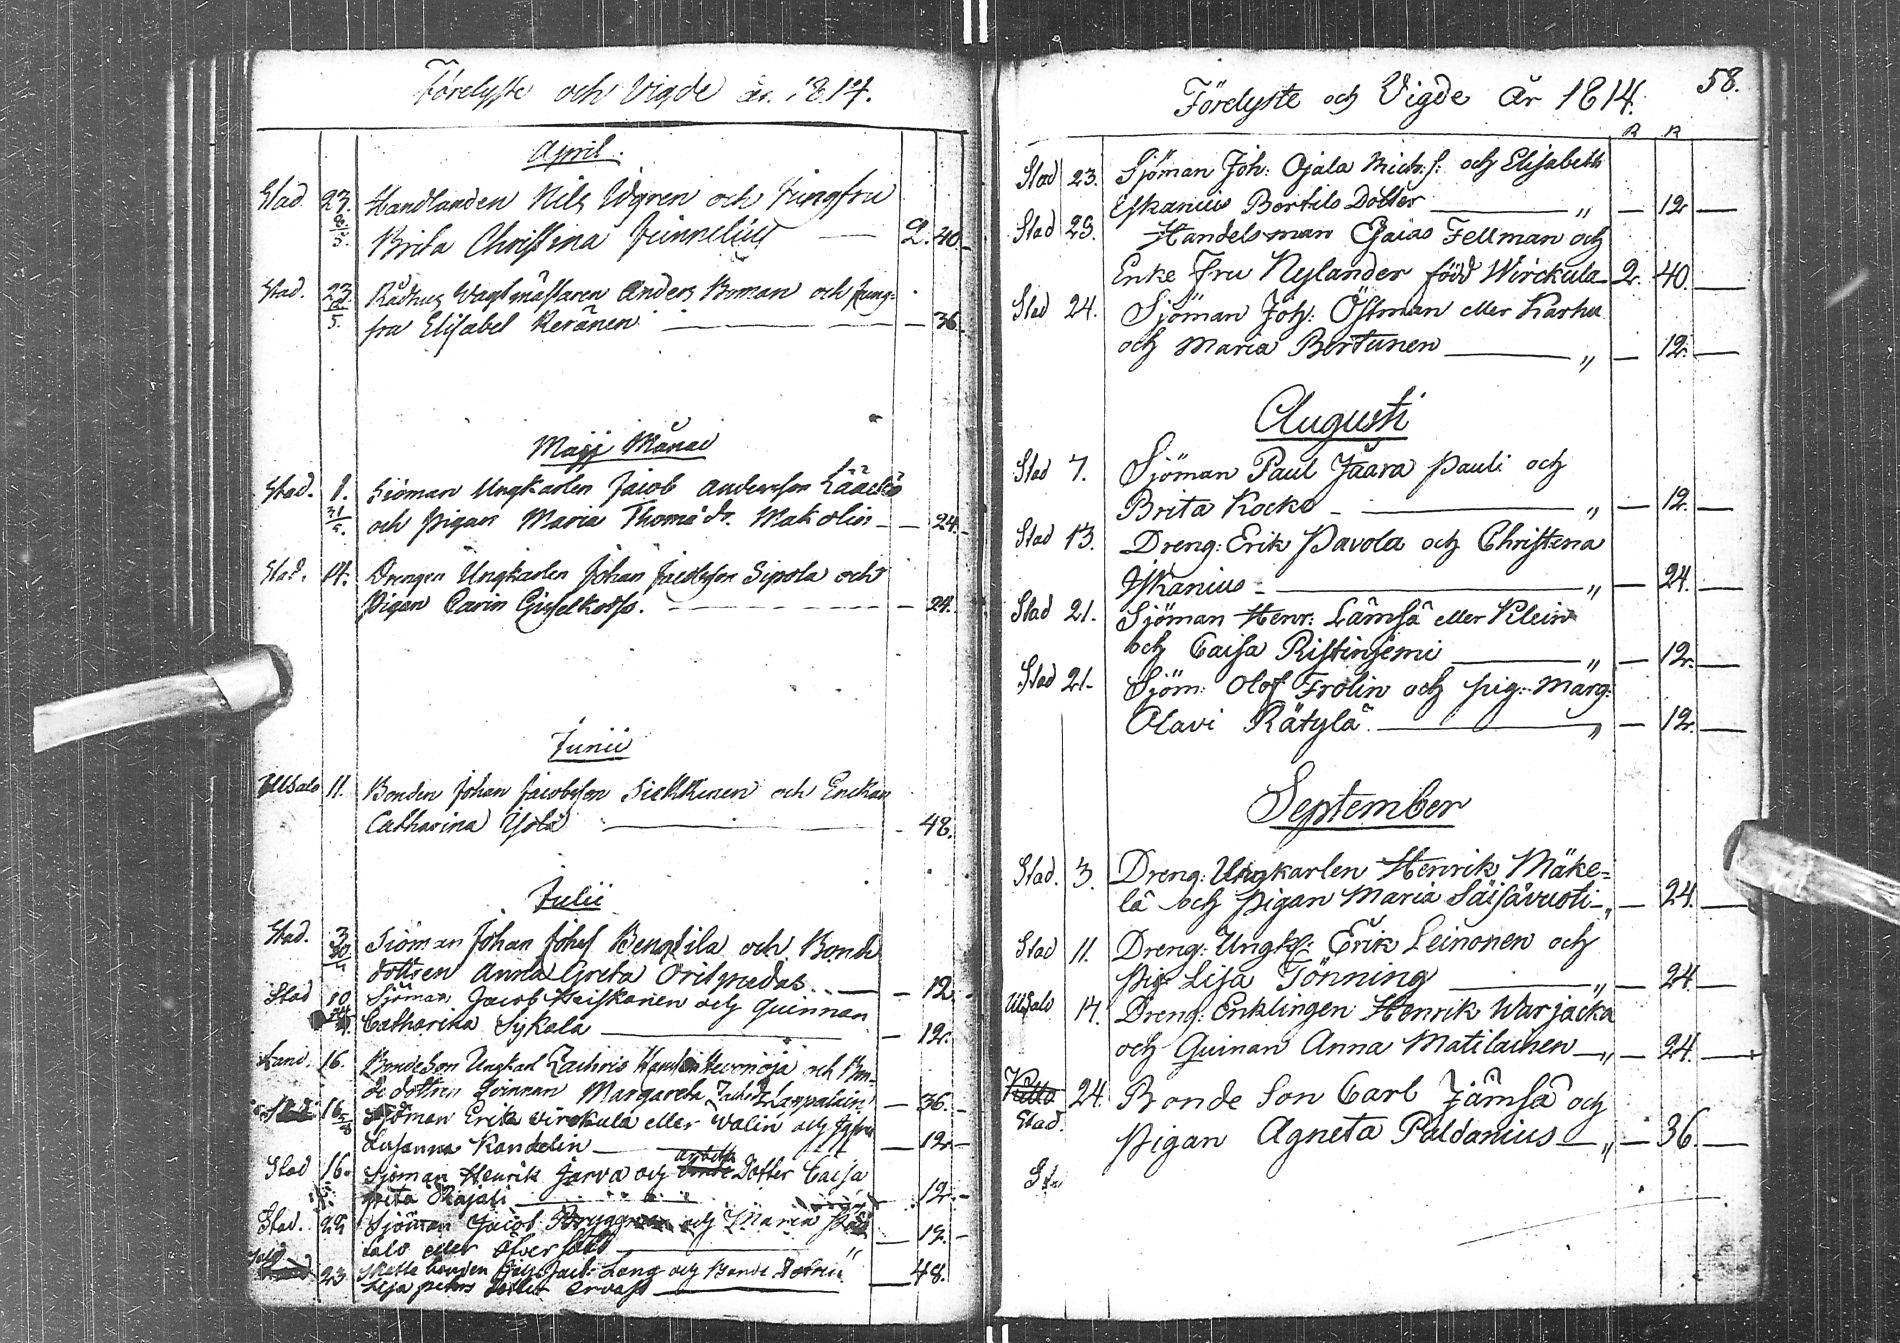 Förelyste och Vigde år 1814.
April.
Stad 23. Handlanden Nils Udgren och Jungfru
8/5. Brita Christina Junnelius — 2. 40.
Stad. 23. Rådhus Vagtmästaren Anders Boman och Jung-
5. fru Elisabet Keränen — 36.
Maji Månad
Stad. 1. Siöman Ungkarlen Jacob Andersson
31/5. och Pigan Maria Thomædr. Makolin — 24.
Stad. 14. Drengen Ungkarlen Johan Jacobsson Sipola och
Pigan Carin — 24.
Junii
Uttsalo 11. Bonden Johan Jacobsson Siekkinen och Enckan
Catharina — 48.
Julii
Stad. 3. Siöman Johan Johsf Bengtila och Bonde
dottren Anna Greta — 12.
Stad 10. Sjöman Jacob Heiskanen och Quinnan
Catharina Sykala — 12.
Land. 16. Bondeson Ungkarl Zachris och Bon-
de dottren Qvinnan Margareta Lappalain — 36.
16. Sjöman Erik Virckula eller Valin och
Susanna Kandelin — 12.
Stad 16. Sjöman Henrik Jarva och Dotter Caisa
Brita Rajati — 12.
Stad. 22. Sjöman Jacob och Maria
talo eller Öfver — 12.
23. Lang och Bonde Dotren
Lisa — 48.
58.
Förelyste och Vigde År 1814.
R K
Stad 23. Sjöman Joh: Ojala Mich: S: och Elisabeth
Eskanius Bertils Dotter — „ — 12 —
Stad 23. Handelsman Fellman och
Enke Fru Nylander född Wirckula — 2. 40. —
Stad 24. Sjöman Joh: Östman eller Karhu
och Maria Bertunen — „ — 12. —
Augusti
Stad 7. Sjöman Paul Jaara Pauli och
Brita Kocko — „ — 12. —
Stad 13. Dreng: Erik Pavola och Christina
Eskanius — „ — 24. —
Stad 21. Sjöman Henr: Lämsä eller Klein
och Caisa Ristinjemi — „ — 12. —
Stad 21. Sjöm: Olof Frolin och Pig: Marg:
Olavi Rätylä — „ — 12. —
September
Stad. 3. Dreng: Ungkarlen Henrik Mäke=
lä och Pigan Maria Säisävuoti — „ — 24. —
Stad 11. Dreng: Ungk: Erik Leinonen och
Pig: Lisa Tönning — „ — 24 —
Utsalo 17. Dreng: Enklingen Henrik Warjacka
och Quinan Anna Matilainen — „ — 24. —
24. Bonde Son Carl Jämsä och
Stad. Pigan Agneta Paldanius — „ — 36. —